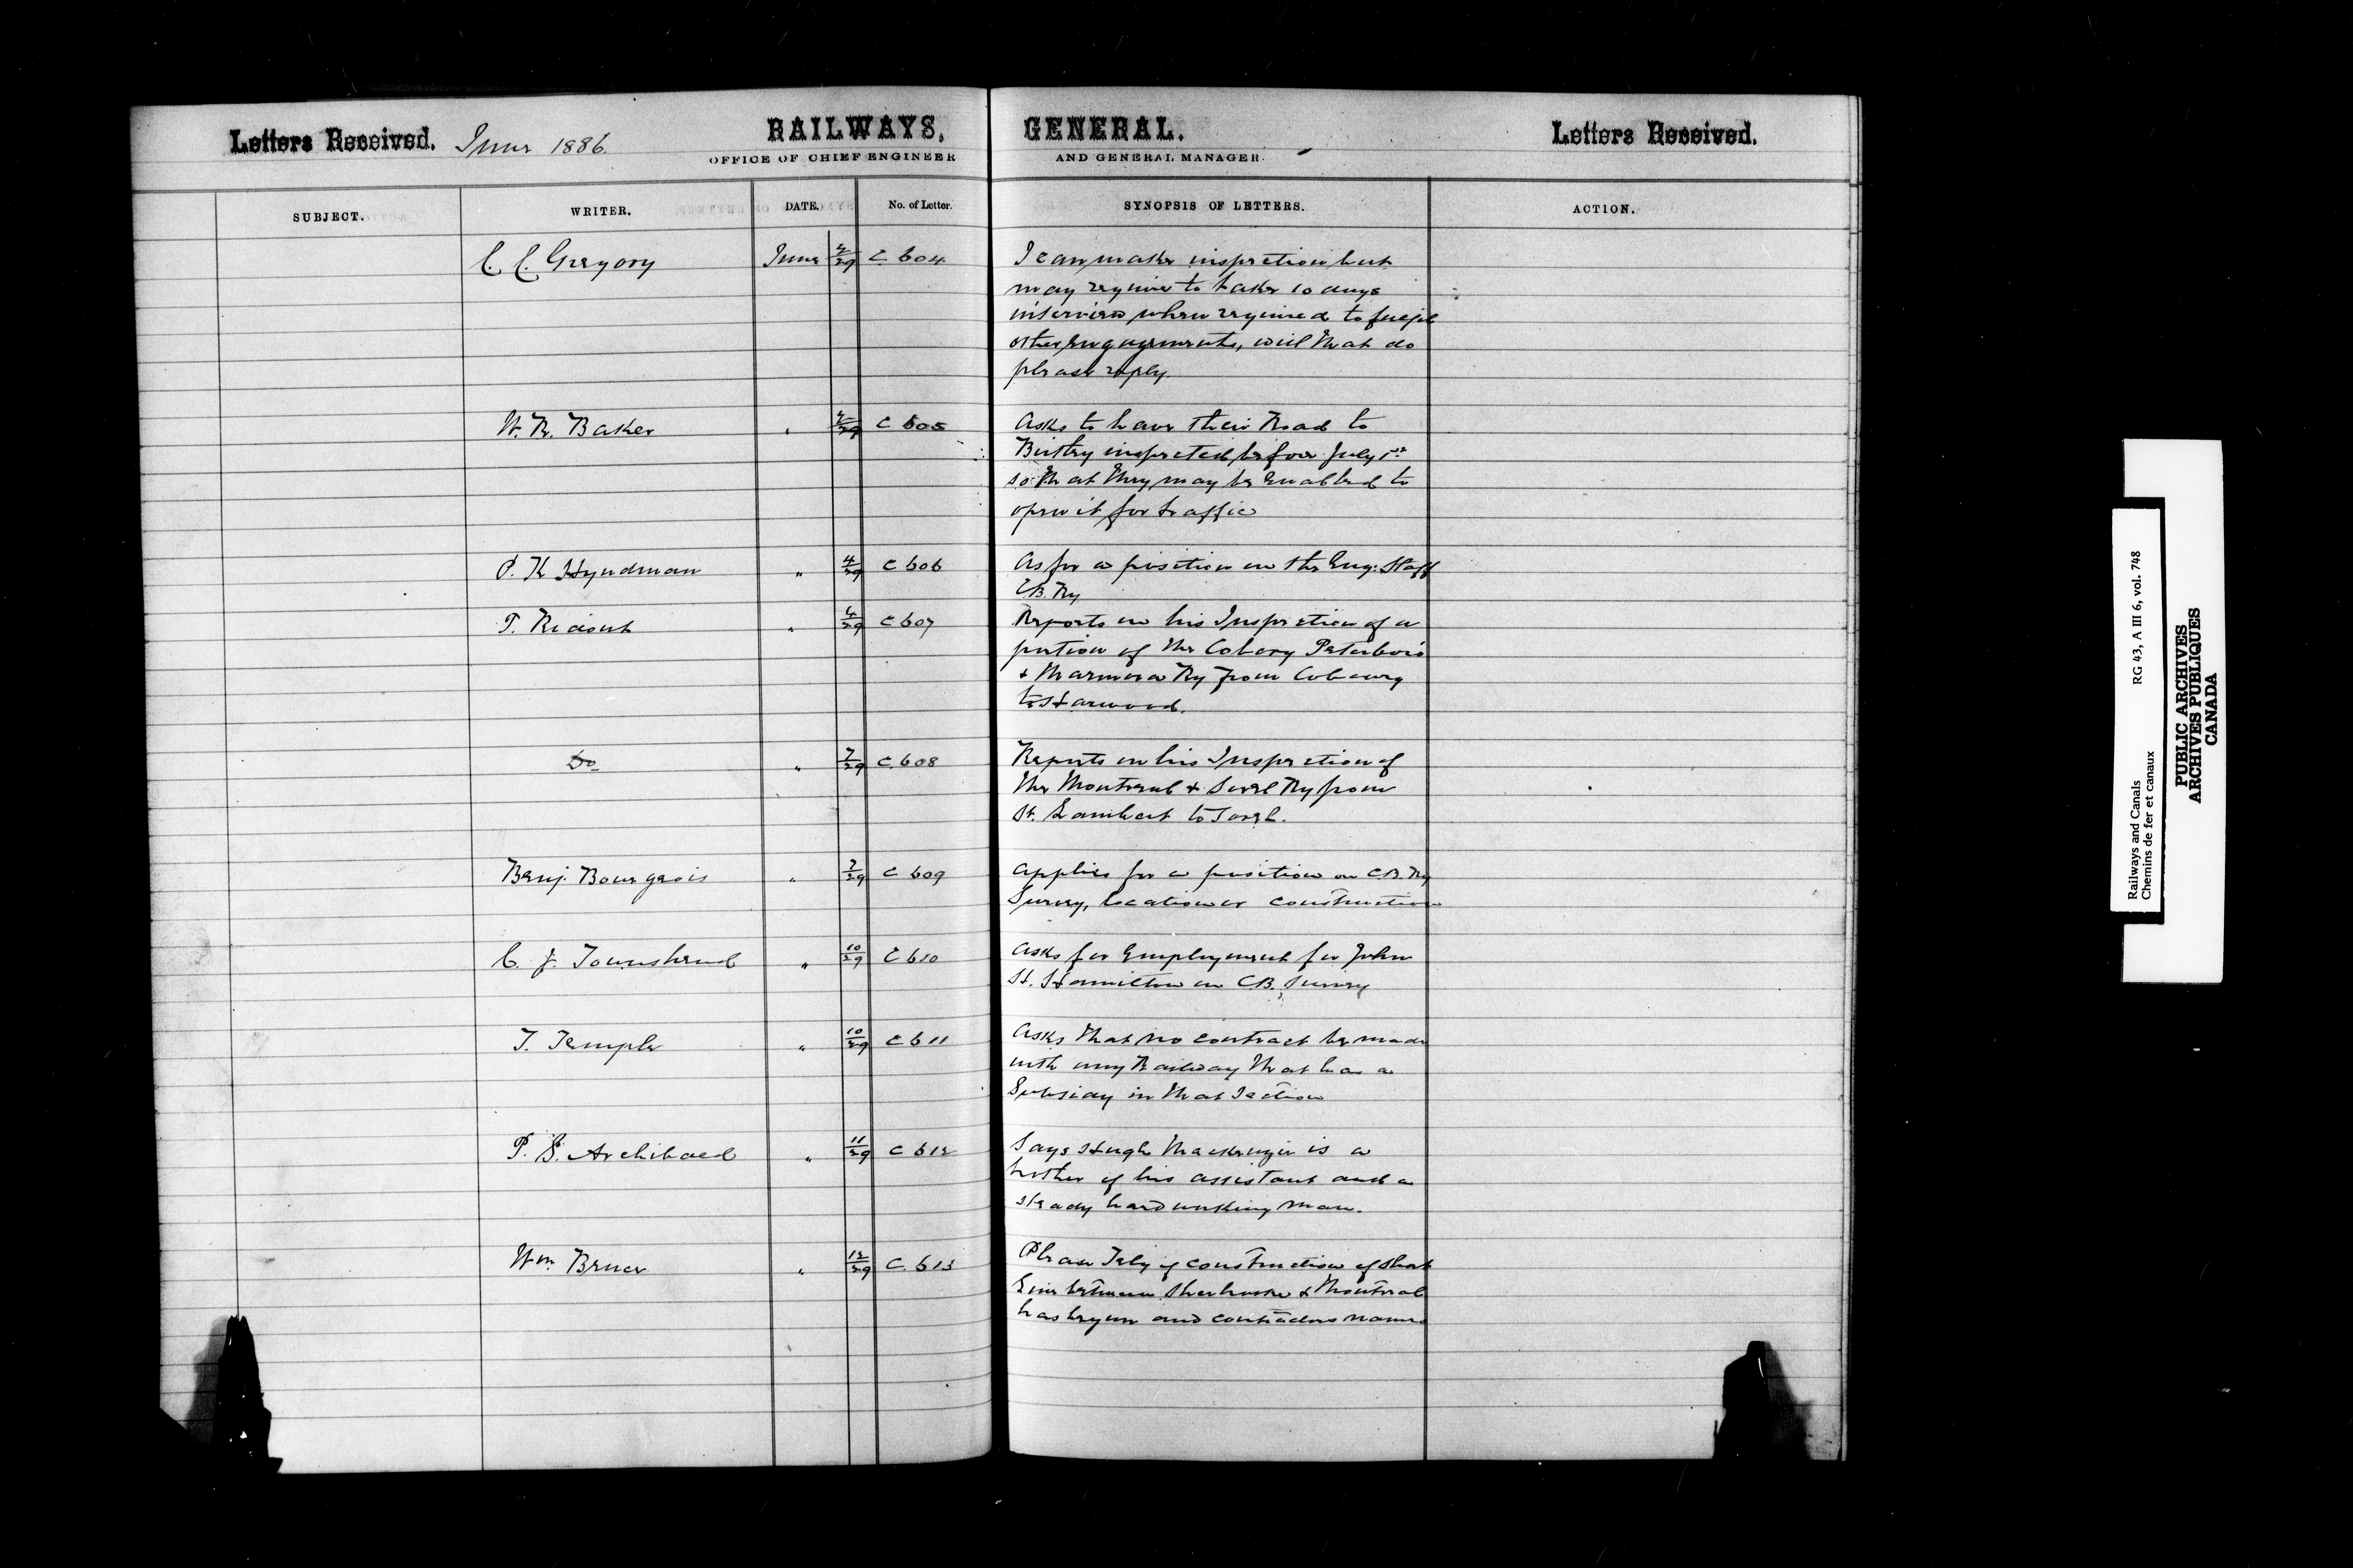 Letters Received. June 1886. RAILWAYS, GENERAL. Letters Received.
OFFICE OF CHIEF ENGINEER AND GENERAL MANAGER.
SUBJECT. WRITER. DATE. No. of Letter. SYNOPSIS OF LETTERS. ACTION.
C. C. Gregory June 29 C 604 I can make inspection but
may require to take 10 days
when required to
other engagements, will that do
please reply.
W. R. Baker " 29 C 605 Asks to have their Road to
inspected before July 1st
so that they may be enabled to
open it for traffic
P. K. Hyndman " 4/29 C 606 As for a position on the Eng: Staff
C.B. Ry
T. Ridout " 4/29 C 607 Reports on his Inspection of a
portion of the Cobourg Peterboro
& Marmora Ry from Cobourg
to Harwood.
Do " 7/29 C 608 Reports on his Inspection of
the Montreal & Sorel Ry from
St. Lambert to Sorel.
Benj. Bourgeois " 7/29 C 609 Applies for a position on C.B. Ry
Survey, location or construction
C. J. Townshend " 10/29 C 610 Asks for Employment for John
H. Hamilton on C.B. Survey
T. Temple " 10/29 C 611 Asks that no contract be made
with any Railway that has a
Subsidy in that Section
P. S. Archibald " 11/29 C 612 Says Hugh Mackenzie is a
brother of his assistant and a
steady hard working man.
Wm. Bruce " 12/29 C 613 Please Tely if construction of Short
Line between Sherbrooke & Montreal
has begun and contractors name
Railways and Canals RG 43, A III 6, vol. 748
Chemins de fer et canaux
PUBLIC ARCHIVES
ARCHIVES PUBLIQUES
CANADA